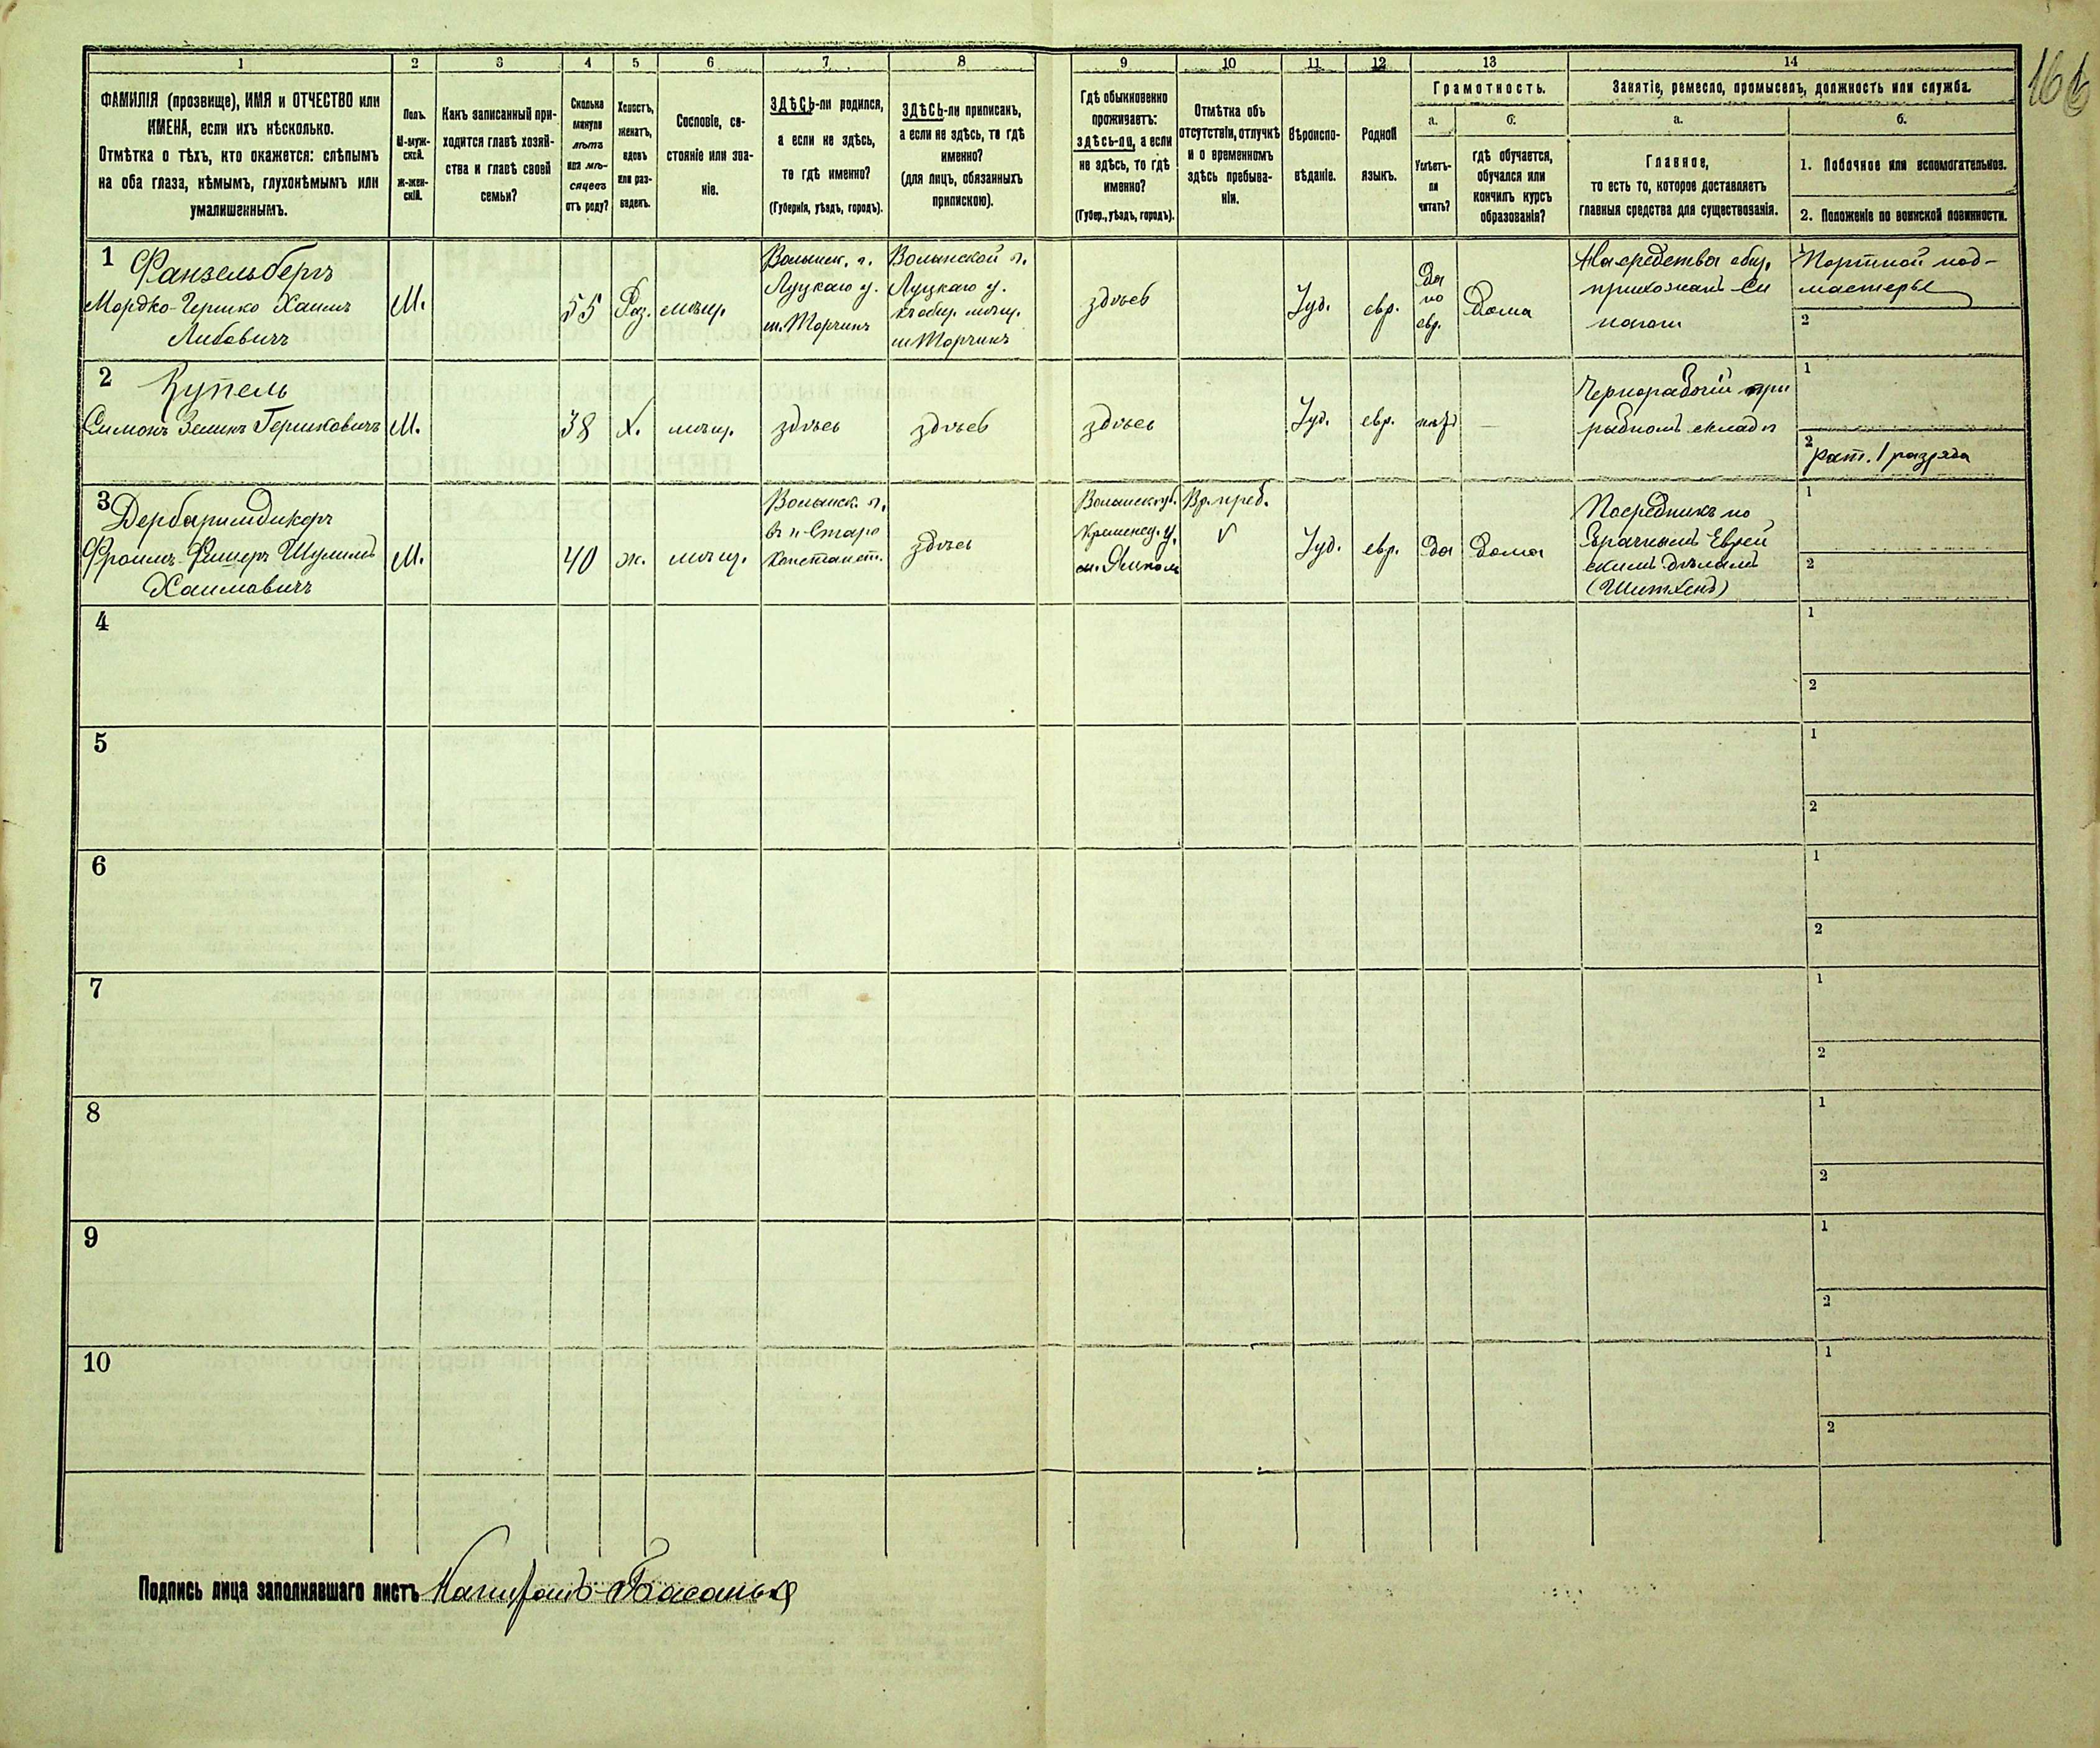 166
1 2 3 4 5 6 7 8 9 10 11 12 13 14
ФАМИЛІЯ (прозвище), ИМЯ и ОТЧЕСТВО или
ИМЕНА, если ихъ нѣсколько.
Отмѣтка о тѣхъ, кто окажется: слѣпымъ
на оба глаза, нѣмымъ, глухонѣмымъ или
умалишеннымъ.
Полъ.
М-муж-
ской.
Ж-жен-
скій.
Какъ записанный при-
ходится главѣ хозяй-
ства и главѣ своей
семьи?
Сколько
минуло
лѣтъ
или мѣ-
сяцевъ
отъ роду?
Холостъ,
женатъ,
вдовъ
или раз-
веденъ.
Сословіе, со-
стояніе или зва-
ніе.
ЗДѢСЬ-ли родился,
а если не здѣсь,
то гдѣ именно?
(Губернія, уѣздъ, городъ).
ЗДѢСЬ-ли приписанъ,
а если не здѣсь, то гдѣ
именно?
(для лицъ, обязанныхъ
припискою).
Гдѣ обыкновенно
проживаетъ:
здѣсь-ли, а если
не здѣсь, то гдѣ
именно?
(Губер., уѣздъ, городъ).
Отмѣтка объ
отсутствіи, отлучкѣ
и о временномъ
здѣсь пребыва-
ніи.
Вѣроиспо-
вѣданіе.
Родной
языкъ.
Грамотность.
а.
Умѣетъ-
ли
читать?
б.
гдѣ обучается,
обучался или
кончилъ курсъ
образованія?
Занятіе, ремесло, промыселъ, должность или служба.
а.
Главное,
то есть то, которое доставляетъ
главныя средства для существованія.
б.
1. Побочное или вспомогательное.
2. Положеніе по воинской повинности.
1
Фанзельбергъ
Мордко-Гершко Хаимъ
Лейбовичъ
М.
55
Раз.
мѣщ.
Волынск. г.
Луцкаго у.
м. Торчинъ
Волынской г.
Луцкаго у.
къ общ. мѣщ.
м Торчинъ
здѣсь
Іуд.
евр.
Да
по
евр.
Дома
На средства общ.
прихожанъ Си
нагоги
1
Портной под-
мастерье
2
2
Купель
Симонъ Зеликъ Гершковичъ
М.
38
Х.
мѣщ.
здѣсь
здѣсь
здѣсь
Іуд.
евр.
нѣтъ
—
Чернорабочій при
рыбномъ складѣ
1
2
рат. 1 разряда
3
Дербаримдикеръ
Фроимъ-Фишеръ Шулимъ
Хаимовичъ
М.
40
ж.
мѣщ.
Волынск. г.
въ г-Старо
константи.
здѣсь
Волынск. губ.
Кременец. у.
м. Ямполь
Вр. преб.
V
Іуд.
евр.
Да
Дома
Посредникъ по
брачнымъ Еврей
скимъ дѣламъ
1
2
4
1
2
5
1
2
6
1
2
7
1
2
8
1
2
9
1
2
10
1
2
Подпись лица заполнявшаго листъ